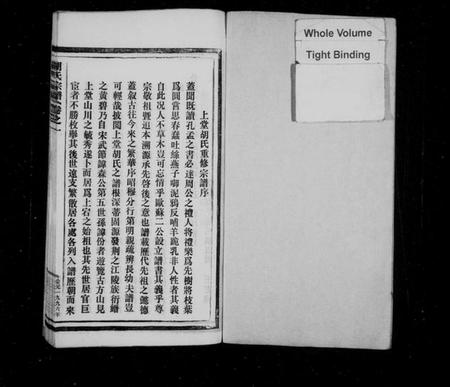 Whole Volume
Tight Binding
上堂胡氏重修宗譜序
蓋聞既讀孔孟之書必達周公之禮樂爲先樹將枝葉
爲圓嘗思春蠶吐絲燕子啣泥鴉反哺羊跪乳非人性者其義
自此况人不草木豈可忘情乎歐蘇二公設立譜書其義乎尊
宗敬祖暨追本溯源承先啓後之意也譜載歷代先祖之懿德
蓋叙古往今來之繁華序昭穆分行第明親疏辨長幼夫譜豈
可輕哉披閱上堂胡氏之譜根深蒂固源發荆之江陵族衍蟠
之黄碧乃自宋武節諱森公第五世孫諱份者遊覽古方山見
上堂山川之毓秀遂卜而居爲上宕之始祖也其先世居官巨
宦者不勝枚舉其後世遠支繁散居各處各列入譜歷朝而來
胡氏宗譜卷之一